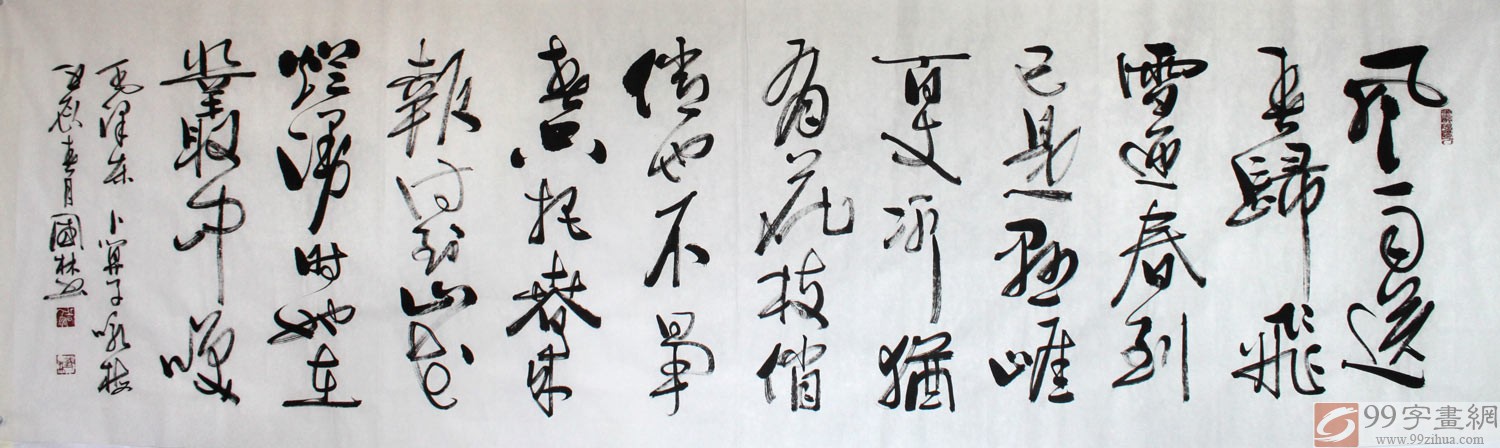 風雨送
春歸飛
雪迎春到
已是懸崖
百丈冰猶
有花枝俏
俏也不爭
春只把春來
報待到山花
爛漫時她在
叢中咲
毛澤東 卜算子咏梅
壬辰春月國林
99字畫網
www.99zihua.com